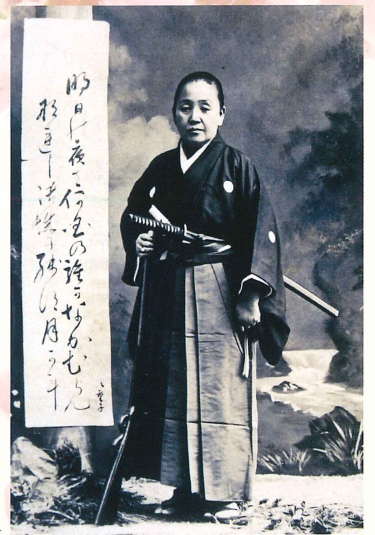 明日の夜は何国の誰かながむらむ
なれし御城に残す月かげ
八重子